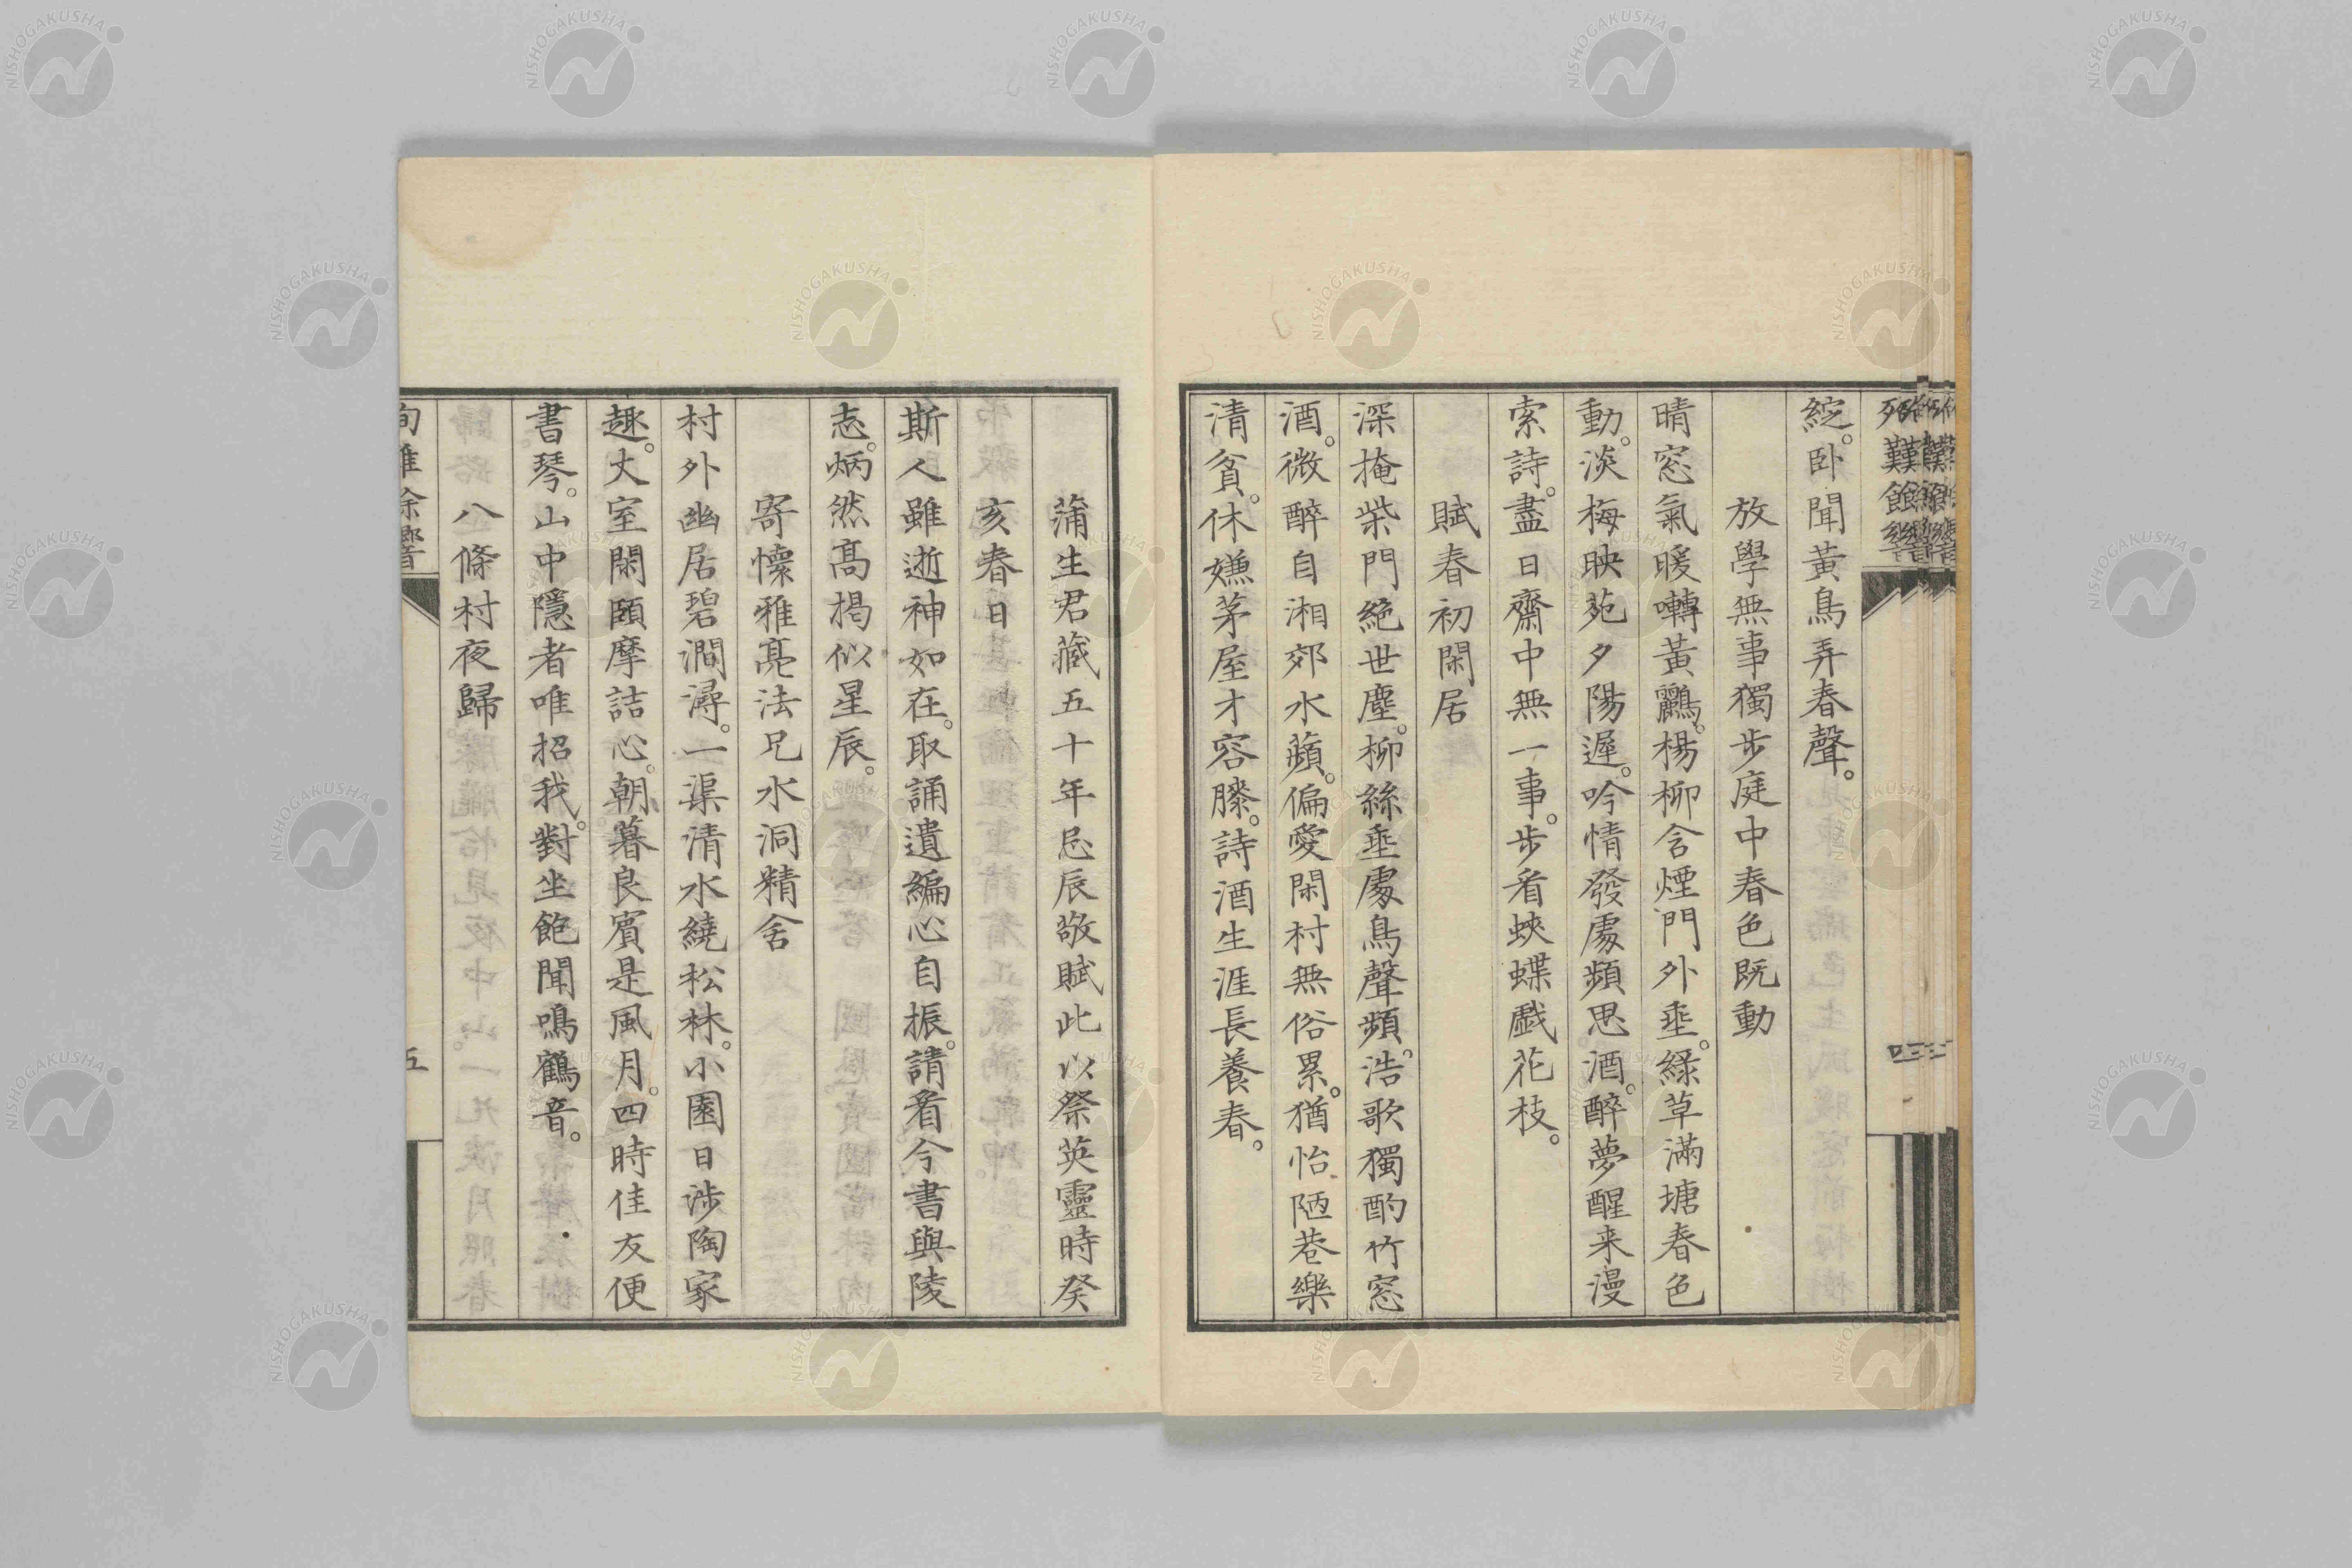 綻。卧聞黃鳥弄春聲。
放學無事獨步庭中春色既動
晴窓氣暖囀黃鸝。楊柳含煙門外垂。緑草滿塘春色
動。淡梅映苑夕陽遲。吟情發處頻思酒。醉夢醒来漫
索詩。盡日齋中無一事。步看蛺蝶戲花枝。
賦春初閑居
深掩柴門絶世塵。柳絲垂處鳥聲頻。浩歌獨酌竹窓
酒。微醉自湘郊水蘋。偏愛閑村無俗累。猶怡陋巷樂
清貧。休嫌茅屋才容膝。詩酒生涯長養春。
四
蒲生君藏五十年忌辰敬賦此以祭英靈時癸
亥春日
斯人雖逝神如在。取誦遺編心自振。請看今書與陵
志。炳然髙揭似星辰。
寄懷雅亮法兄水洞精舍
村外幽居碧澗潯。一渠清水繞松林。小園日涉陶家
趣。丈室閑頤摩詰心。朝暮良賓是風月。四時佳友便
書琴。山中隱者唯招我。對坐飽聞鳴鶴音。
八條村夜歸
五
NISHOGAKUSHA